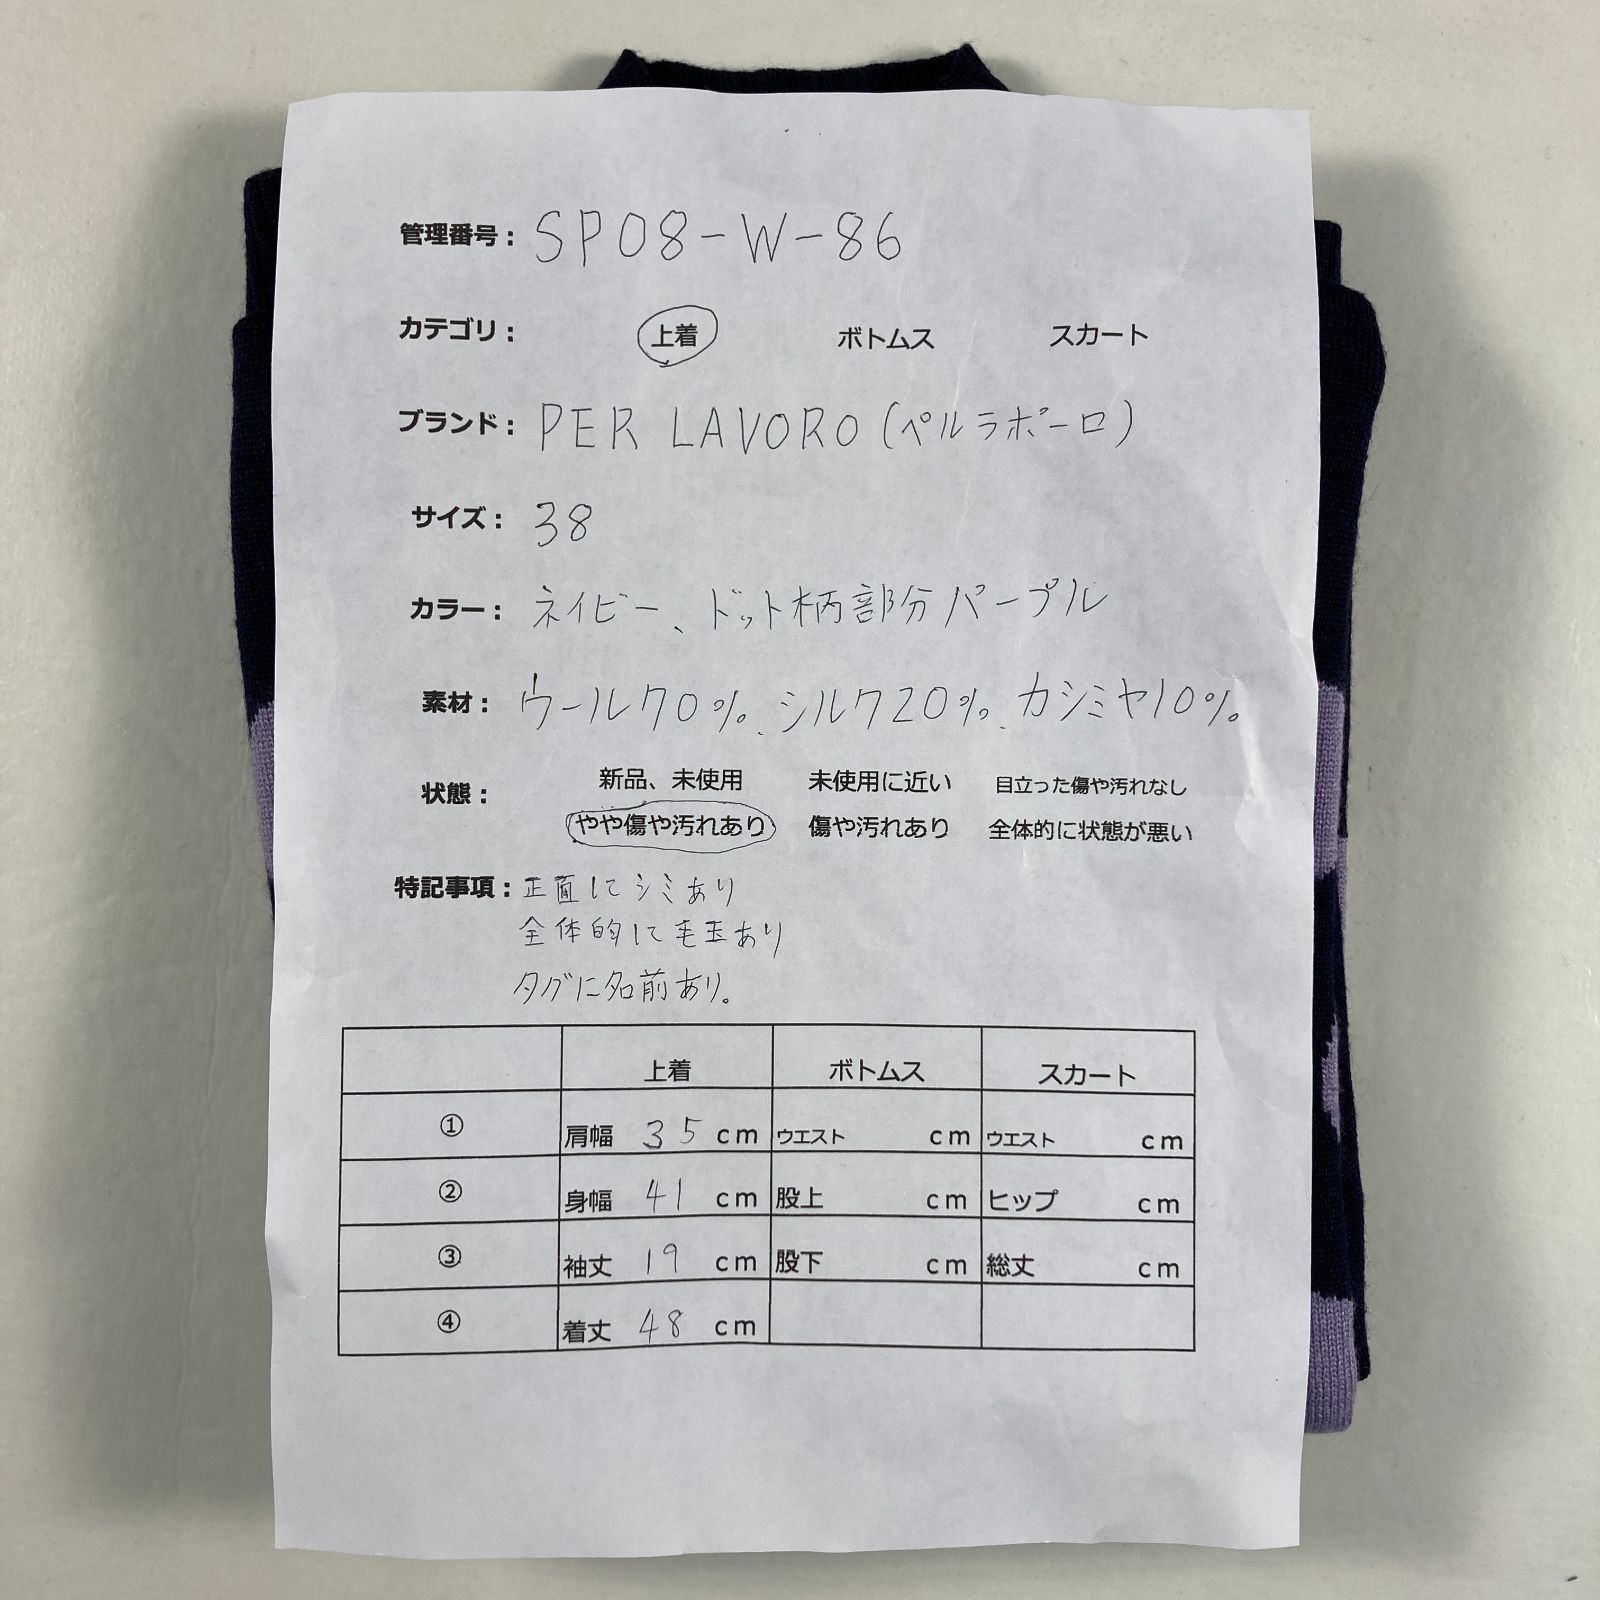 管理番号: SP08-W-86
カテゴリ: 上着 ボトムス スカート
ブランド: PER LAVORO (ペルラボーロ)
サイズ: 38
カラー: ネイビー、ドット柄部分パープル
素材: ウール70%、シルク20%、カシミヤ10%
状態: 新品、未使用 未使用に近い 目立った傷や汚れなし
やや傷や汚れあり 傷や汚れあり 全体的に状態が悪い
特記事項: 正面にシミあり
全体的に毛玉あり
タグに名前あり。
上着 ボトムス スカート
① 肩幅 35 cm ウエスト cm ウエスト cm
② 身幅 41 cm 股上 cm ヒップ cm
③ 袖丈 19 cm 股下 cm 総丈 cm
④ 着丈 48 cm